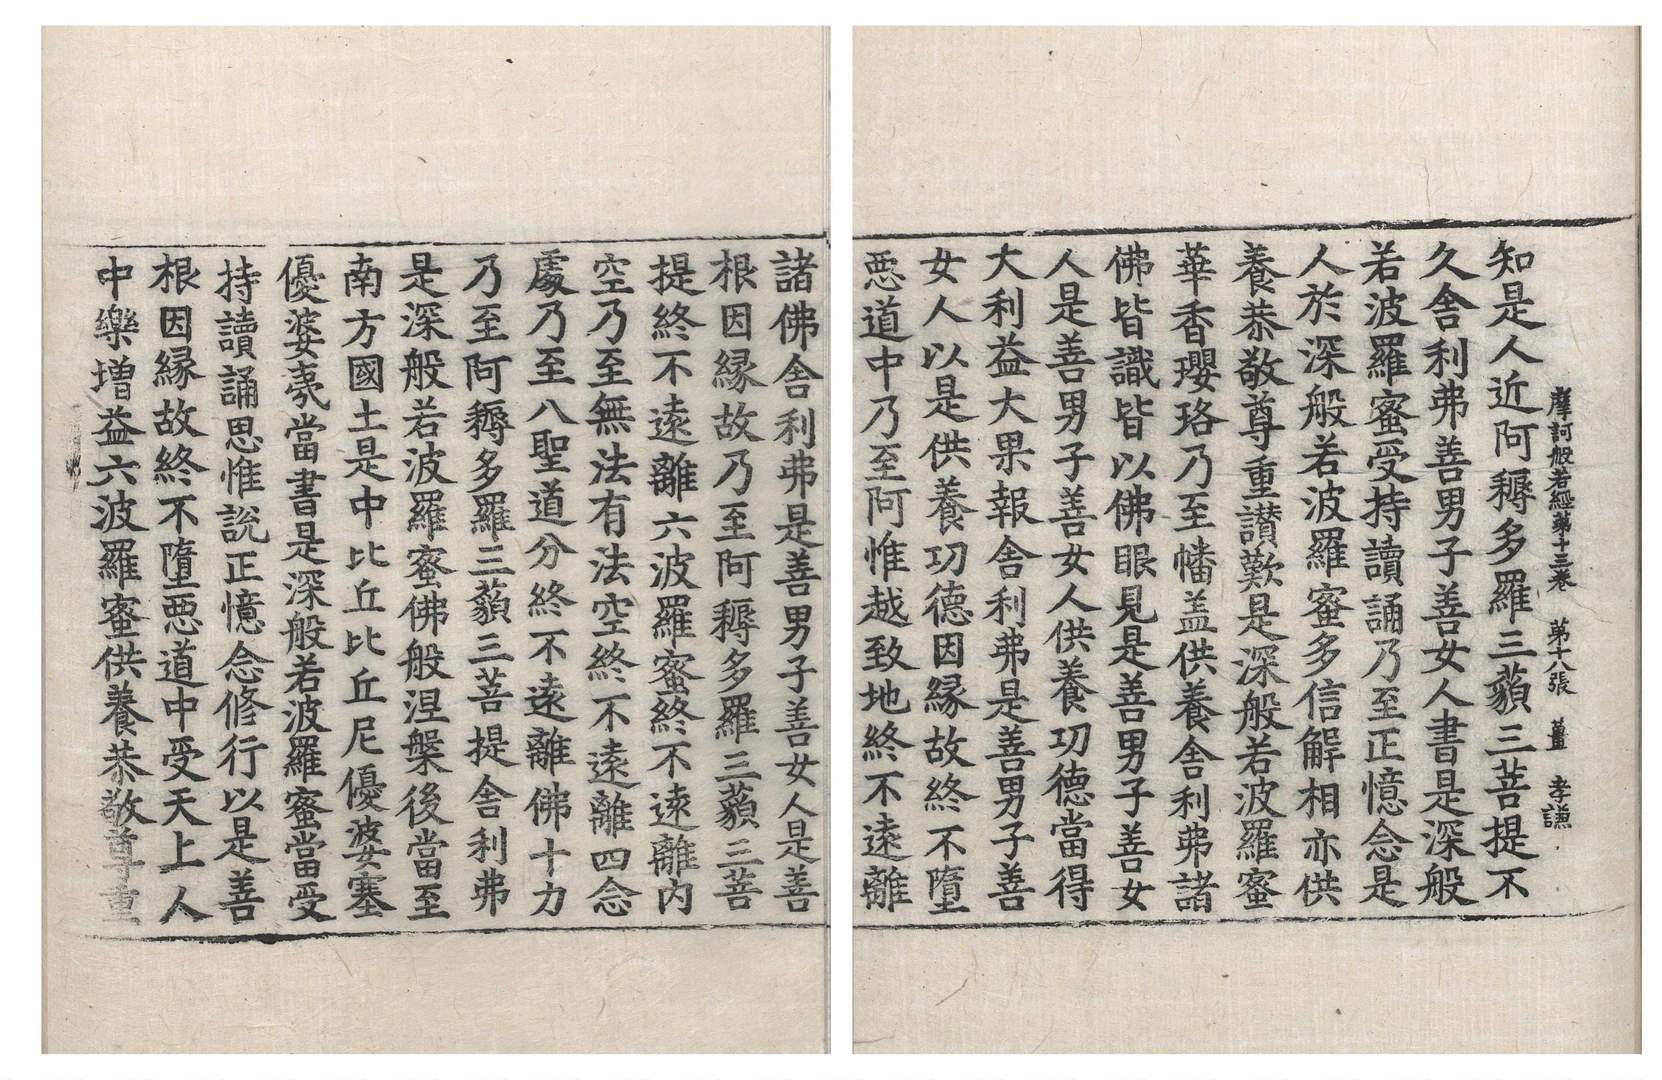 摩訶般若經第十三卷 第十八張 薑 孝謙
知是人近阿耨多羅三藐三菩提不
久舍利弗善男子善女人書是深般
若波羅蜜受持讀誦乃至正憶念是
人於深般若波羅蜜多信解相亦供
養恭敬尊重讃歎是深般若波羅蜜
華香瓔珞乃至幡盖供養舍利弗諸
佛皆識皆以佛眼見是善男子善女
人是善男子善女人供養功德當得
大利益大果報舍利弗是善男子善
女人以是供養功德因縁故終不墮
惡道中乃至阿惟越致地終不遠離
諸佛舍利弗是善男子善女人是善
根因縁故乃至阿耨多羅三藐三菩
提終不遠離六波羅蜜終不遠離内
空乃至無法有法空終不遠離四念
處乃至八聖道分終不遠離佛十力
乃至阿耨多羅三藐三菩提舍利弗
是深般若波羅蜜佛般涅槃後當至
南方國土是中比丘比丘尼優婆塞
優婆夷當書是深般若波羅蜜當受
持讀誦思惟說正憶念修行以是善
根因縁故終不墮惡道中受天上人
中樂增益六波羅蜜供養恭敬尊重